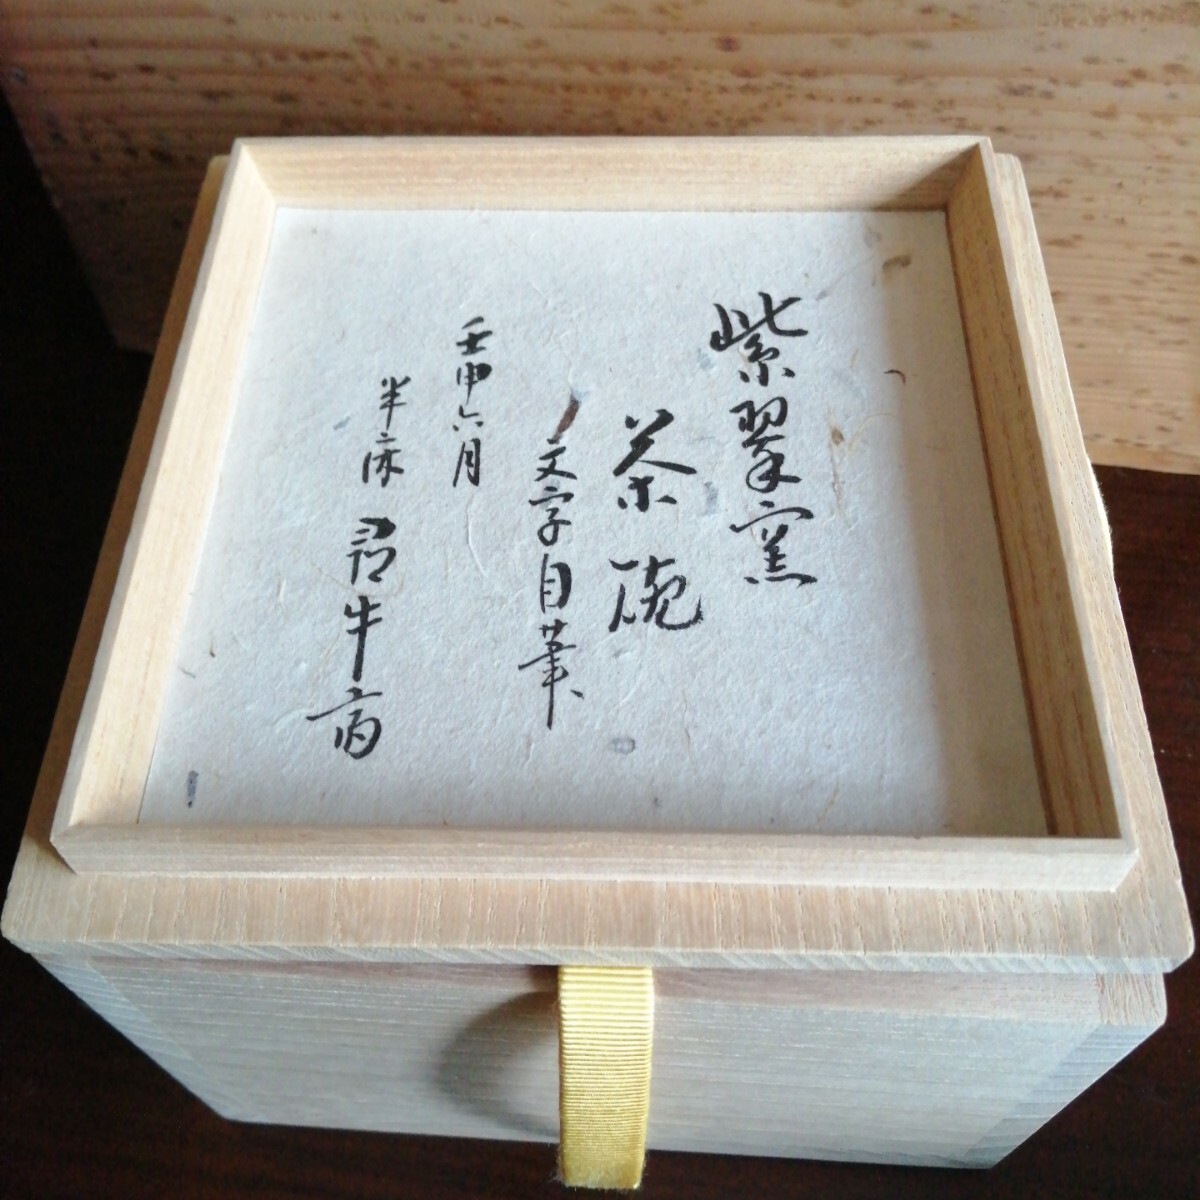 紫翠窯
茶碗
文字自筆
壬申六月
半床 尋牛斎